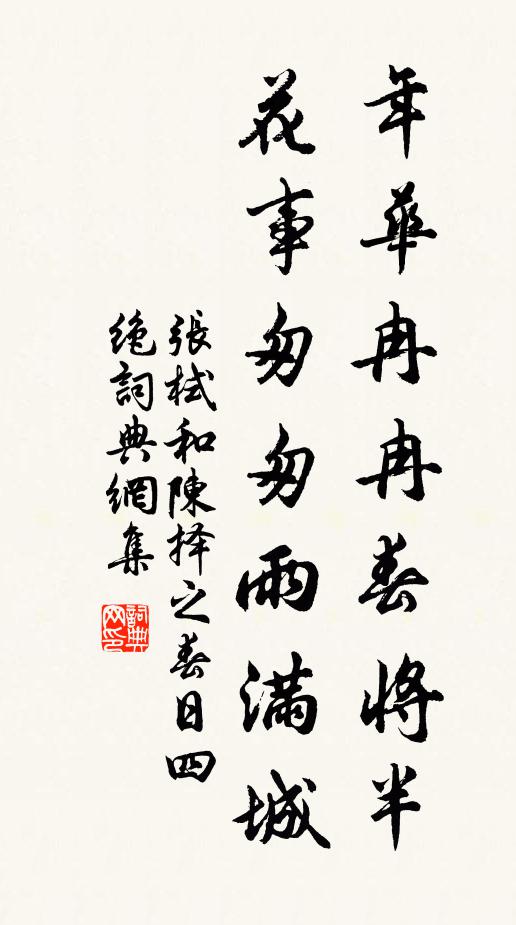 年華冉冉春將半
花事匆匆雨滿城
張栻和陳择之春日四
絕詞典網集
詞典
网印